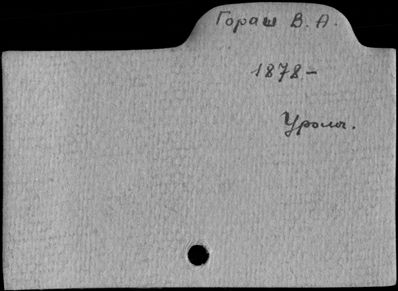 Гораш В. А.
1878-
Уролог.